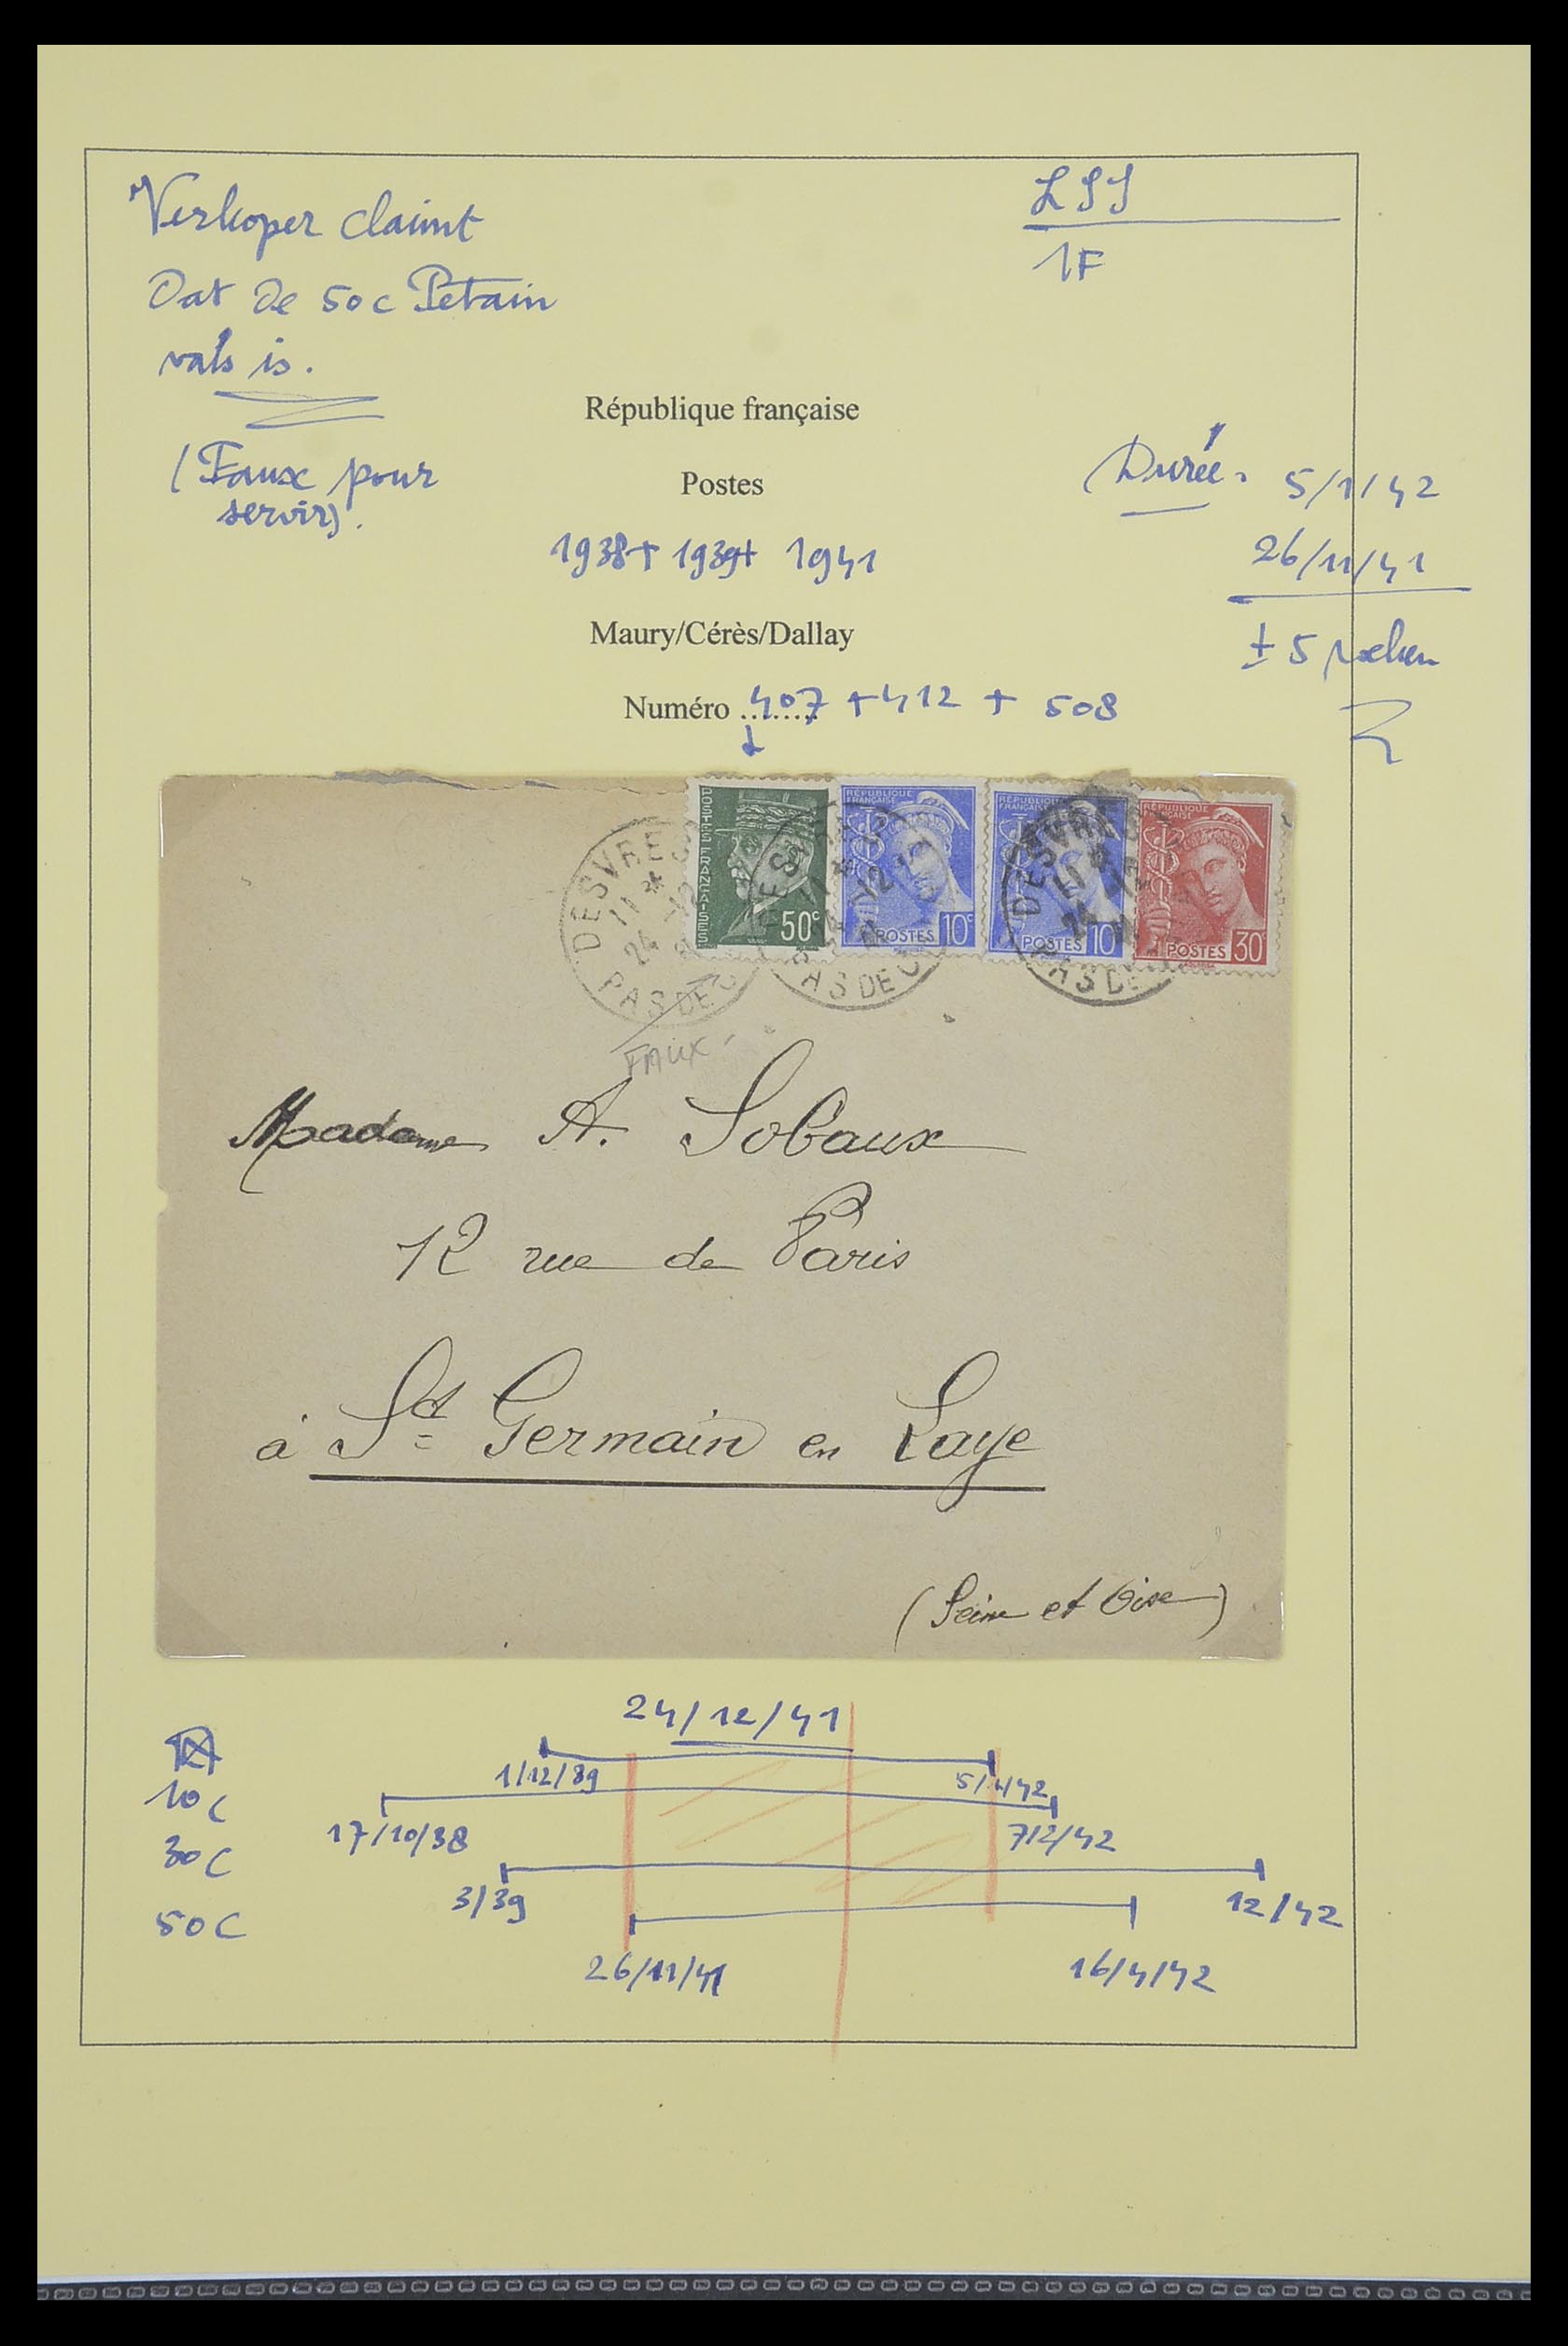 Verkoper claimt
Dat de 50c Petain
vals is.
(Faux pour
servir).
LSI
1F
République française
Postes
1938+ 1939+ 1941
Maury/Cérès/Dallay
Numéro ........ 407 + 412 + 508
Durée: 5/1/42
26/11/41
± 5 weken
POSTES FRANÇAISES
50c
RÉPUBLIQUE
FRANÇAISE
POSTES 10c
RÉPUBLIQUE
FRANÇAISE
POSTES 10
RÉPUBLIQUE
FRANÇAISE
POSTES 30
DESVRES
11 *
24 -12
PAS DE C
DESVRES
11 *
12
PAS DE C
DESVRES
11
24
PAS DE
FAUX
Madame A. Sobaux
12 rue de Paris
à St Germain en Laye
(Seine et Oise)
24/12/41
1/12/39
5/1/42
10c
17/10/38
7/2/42
30c
3/39
12/42
50c
26/11/41
16/4/42